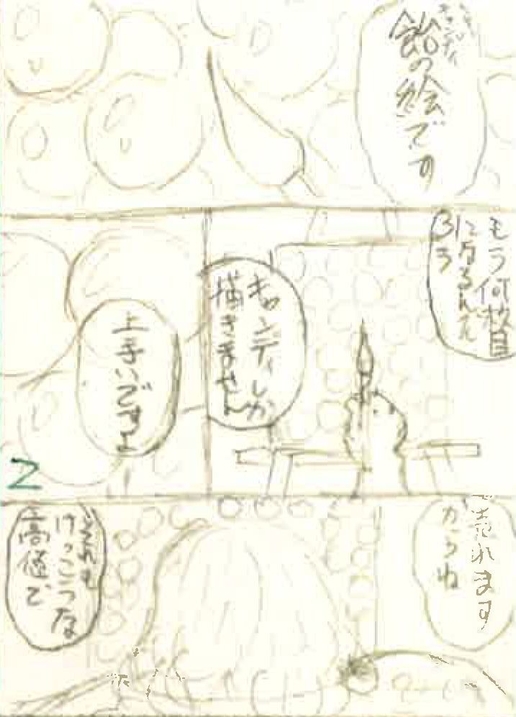 飴の絵です
キャンディ
もう何枚目
になるんだ
ろう
キャンディしか
描きません
上手いですよ
2
売れます
からね
それも
けっこうな
高値で